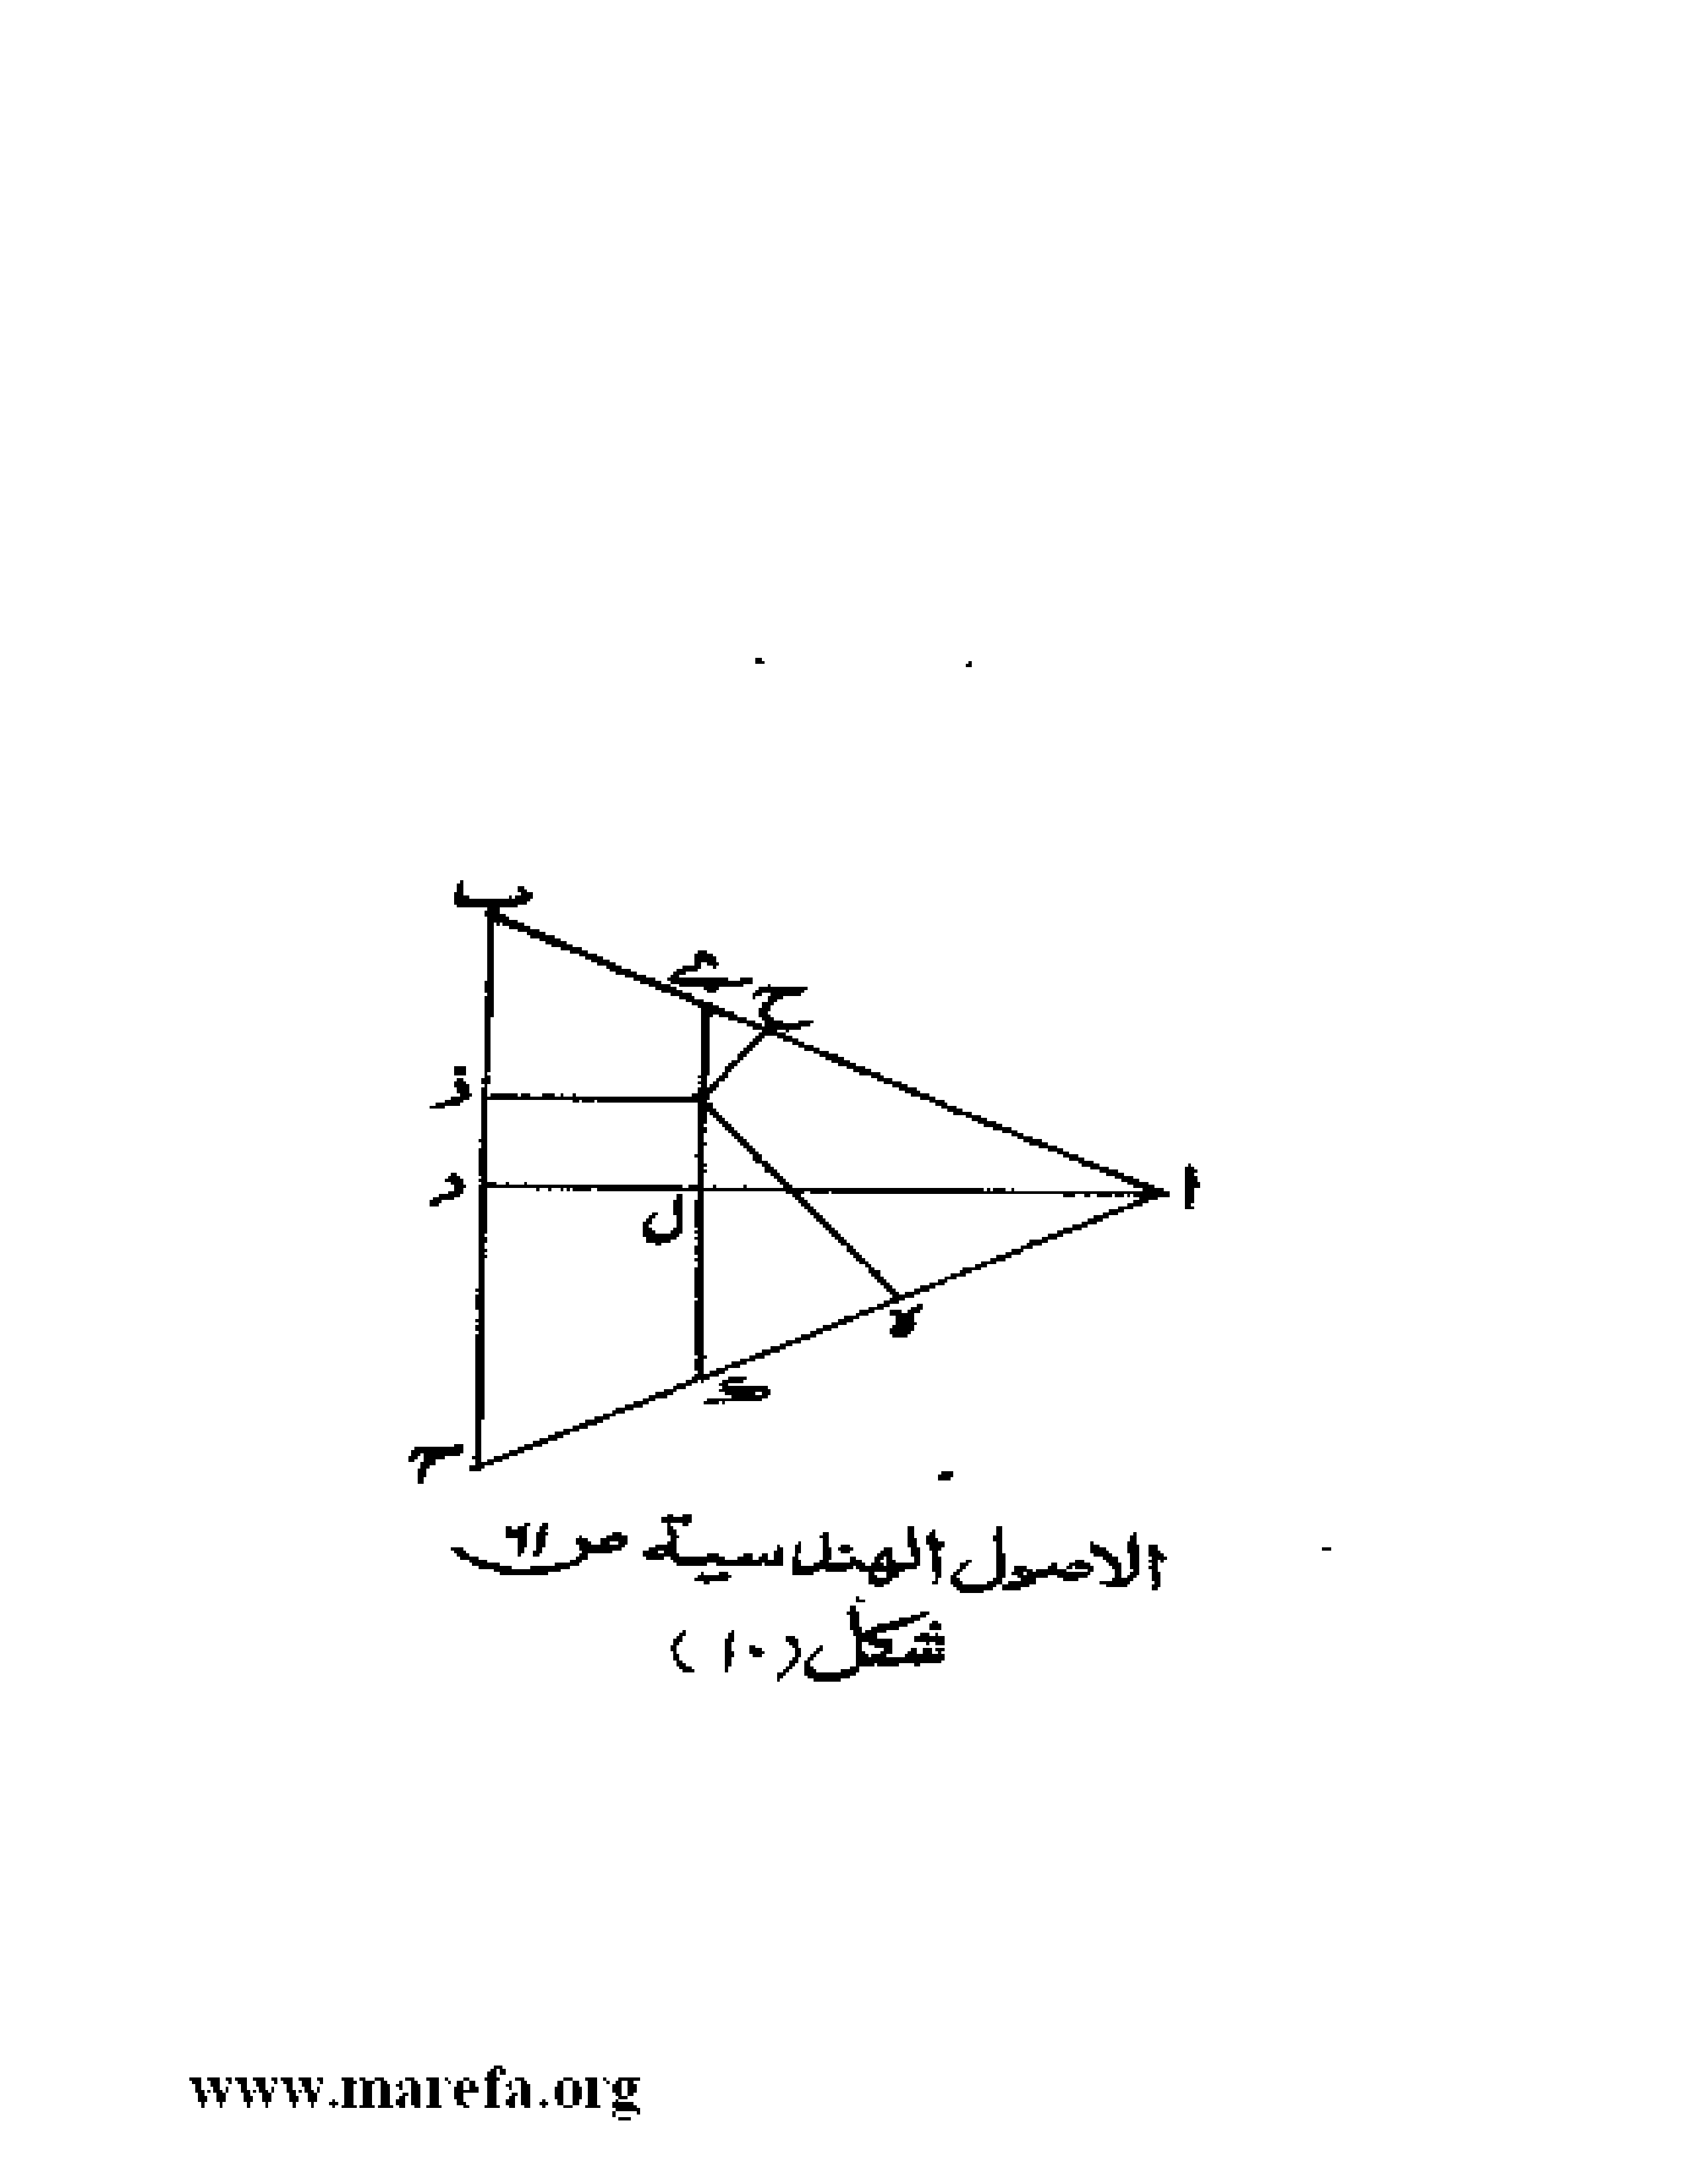 ب
ى
ح
ز
د
ل
ا
ه
ك
ج
الاصول الهندسية ص١٦
شكل (١٠)
www.marefa.org